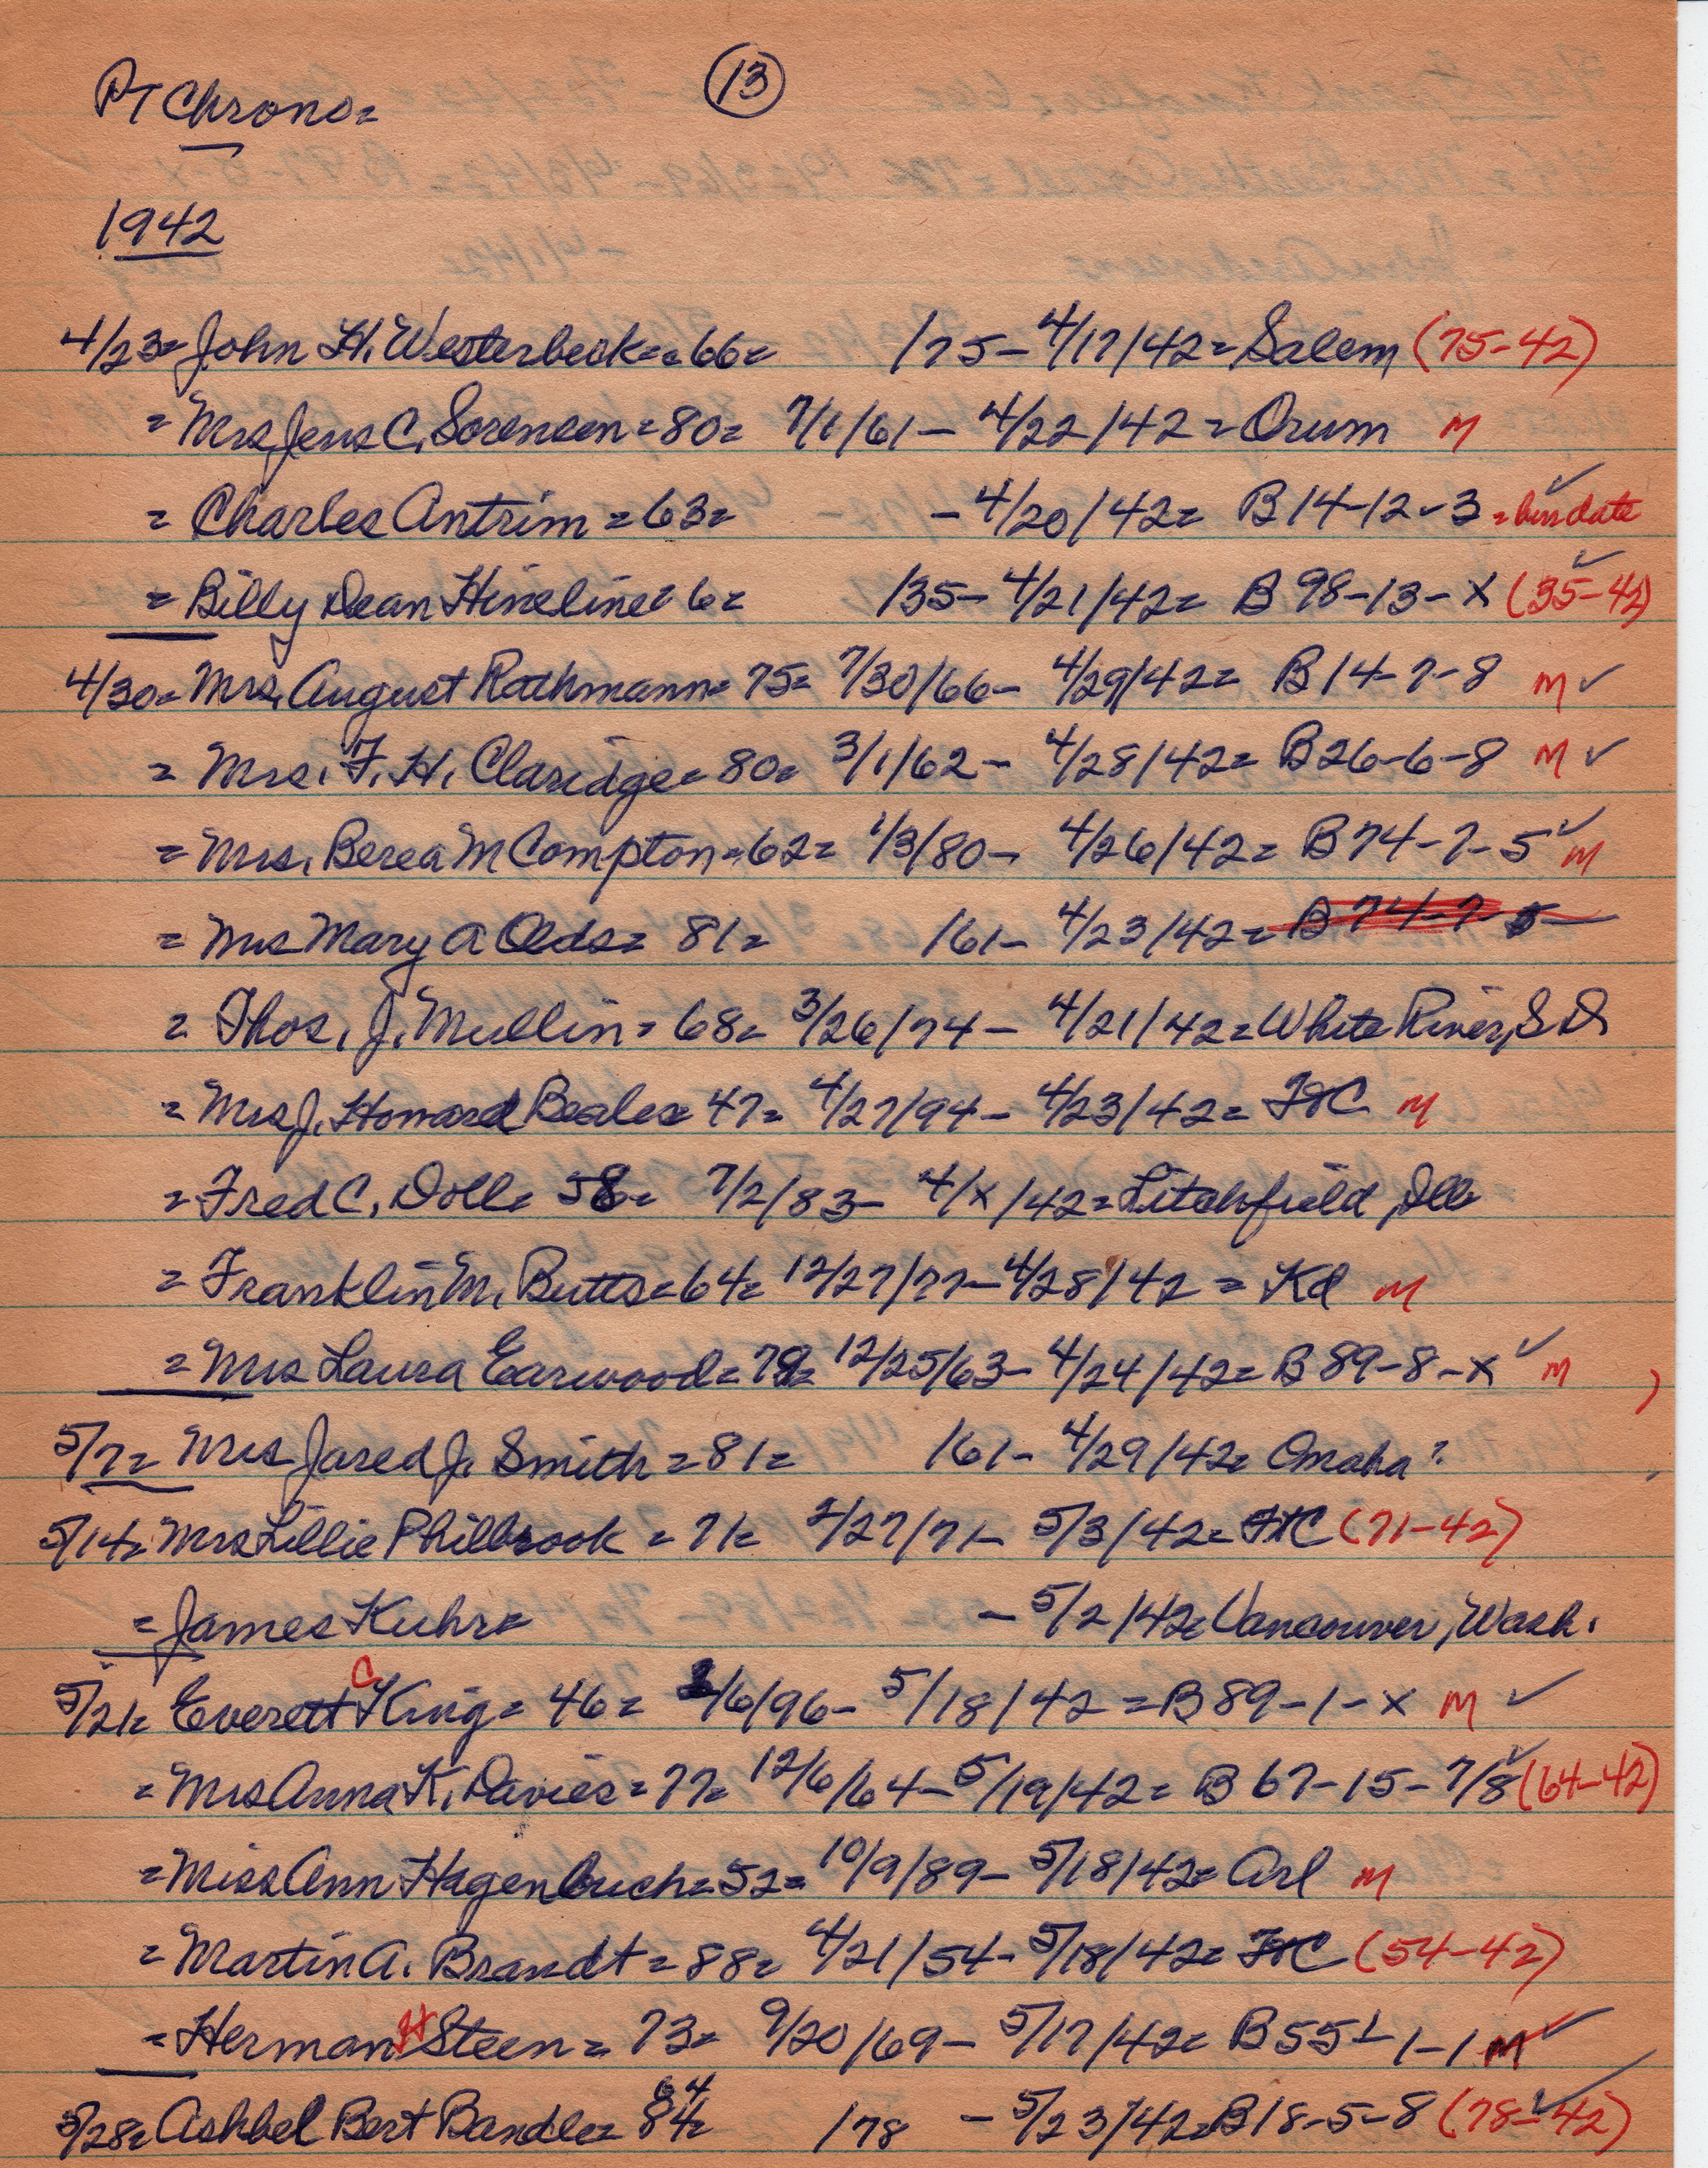 PT Chrono=
13
1942
4/23= John H. Westerbeck= 66= /75- 4/17/42= Salem (75-42)
= Mrs Jens C. Sorensen= 80= 7/1/61- 4/22/42= Orum M
= Charles Antrim= 63= - 4/20/42= B 14-12-3 = bur date
= Billy Dean Hineline= 6= /35- 4/21/42= B 98-13-X (35-42)
4/30= Mrs. August Rathmann= 75= 7/30/66- 4/29/42= B 14-7-8 M ✓
= Mrs. F. H. Claridge= 80= 3/1/62- 4/28/42= B 26-6-8 M ✓
= Mrs. Berea M Compton= 62= 1/3/80- 4/26/42= B 74-7-5 ✓ M
= Mrs Mary A Olds= 81= /61- 4/23/42= B 74-7-5
= Thos. J. Mullin= 68= 3/26/74- 4/21/42= White River, S D
= Mrs J. Howard Beales= 47= 4/27/94- 4/23/42= FtC M
= Fred C. Doll= 58= 7/2/83- 4/x/42= Litchfield, Ill
= Franklin M. Butts= 64= 12/27/77- 4/28/42 = Kd M
= Mrs Laura Earwood= 78= 12/25/63- 4/24/42= B 89-8-X ✓ M
5/7= Mrs Jared J. Smith= 81= /61- 4/29/42= Omaha?
5/14= Mrs Lillie Philbrook = 71= 2/27/71- 5/3/42= FtC (71-42)
= James Kuhr= - 5/2/42= Vancouver, Wash.
5/21= Everett C King= 46= 2/6/96- 5/18/42 = B 89-1-X M ✓
= Mrs Anna K. Davies= 77= 12/6/64- 5/19/42= B 67-15-7/8 ✓ (64-42)
= Miss Ann Hagenbuch= 52= 10/9/89- 5/18/42= Arl M
= Martin A. Brandt= 88= 4/21/54- 5/18/42= FtC (54-42)
= Herman H Steen= 73= 9/20/69- 5/17/42= B 55-1-1 M ✓
5/28= Ashbel Bert Bandle= 64 84= /78 - 5/23/42= B 18-5-8 (78-42) ✓